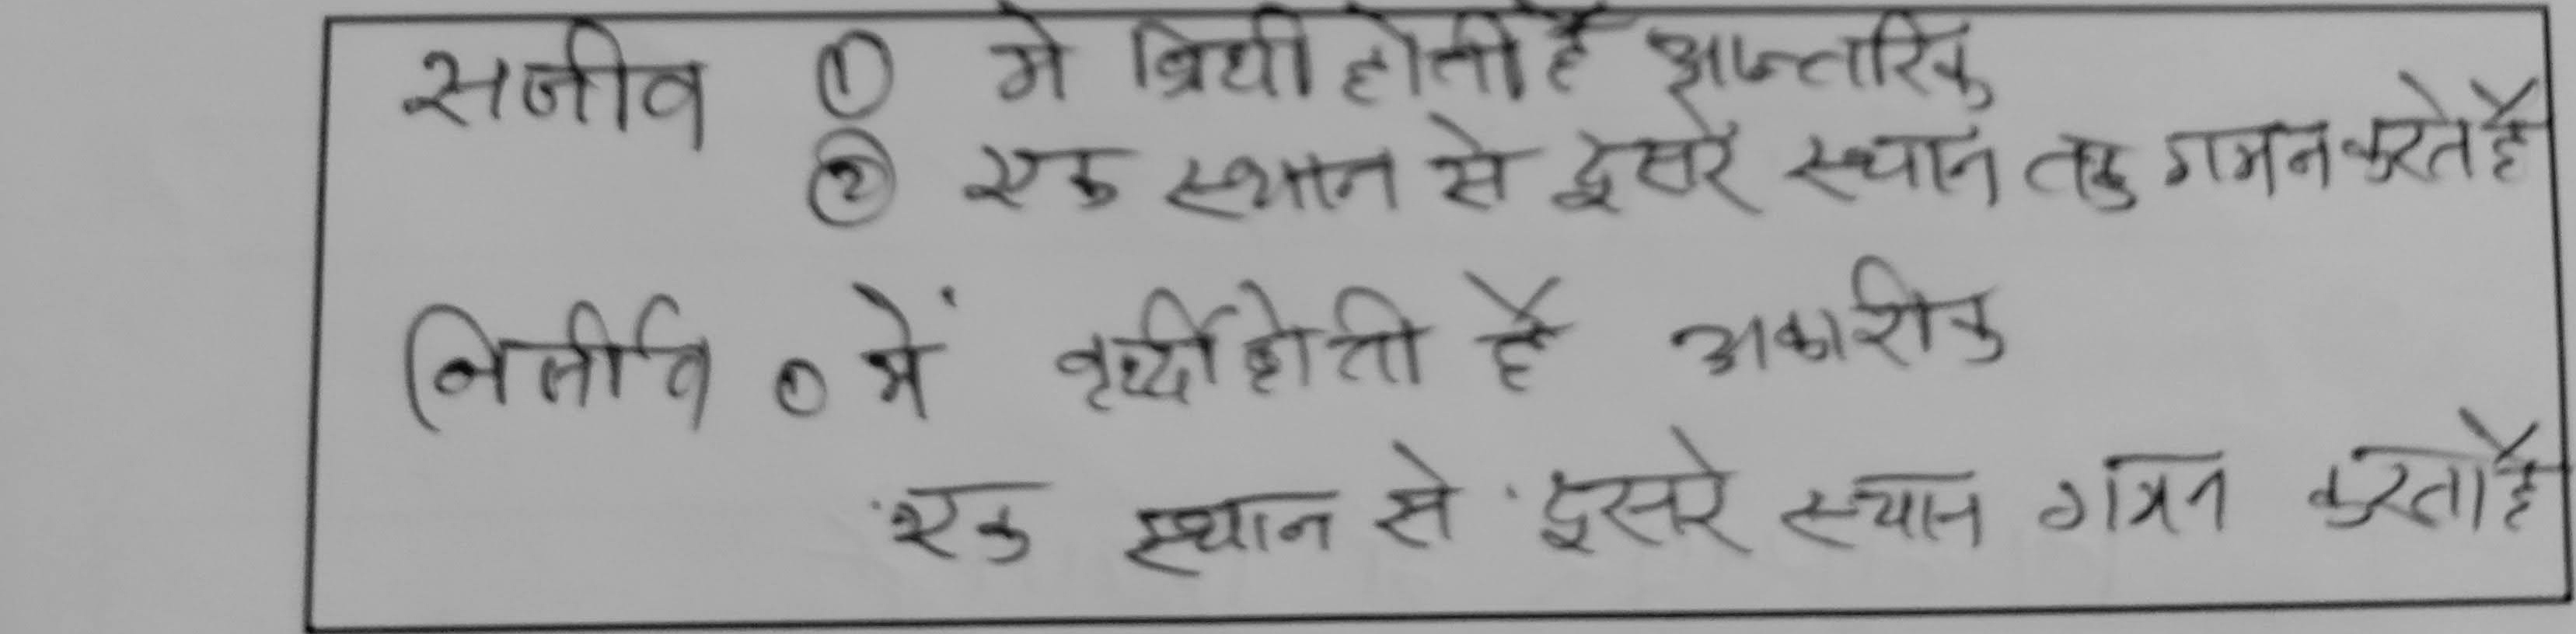 सजीव ① मे व्रिधी होती है आन्तरिक
② एक स्थान से दुसरे स्थान तक गमन करते है
निर्जीव ① में वृध्दी होती है अकारीक
एक स्थान से दुसरे स्थान गमन करता है